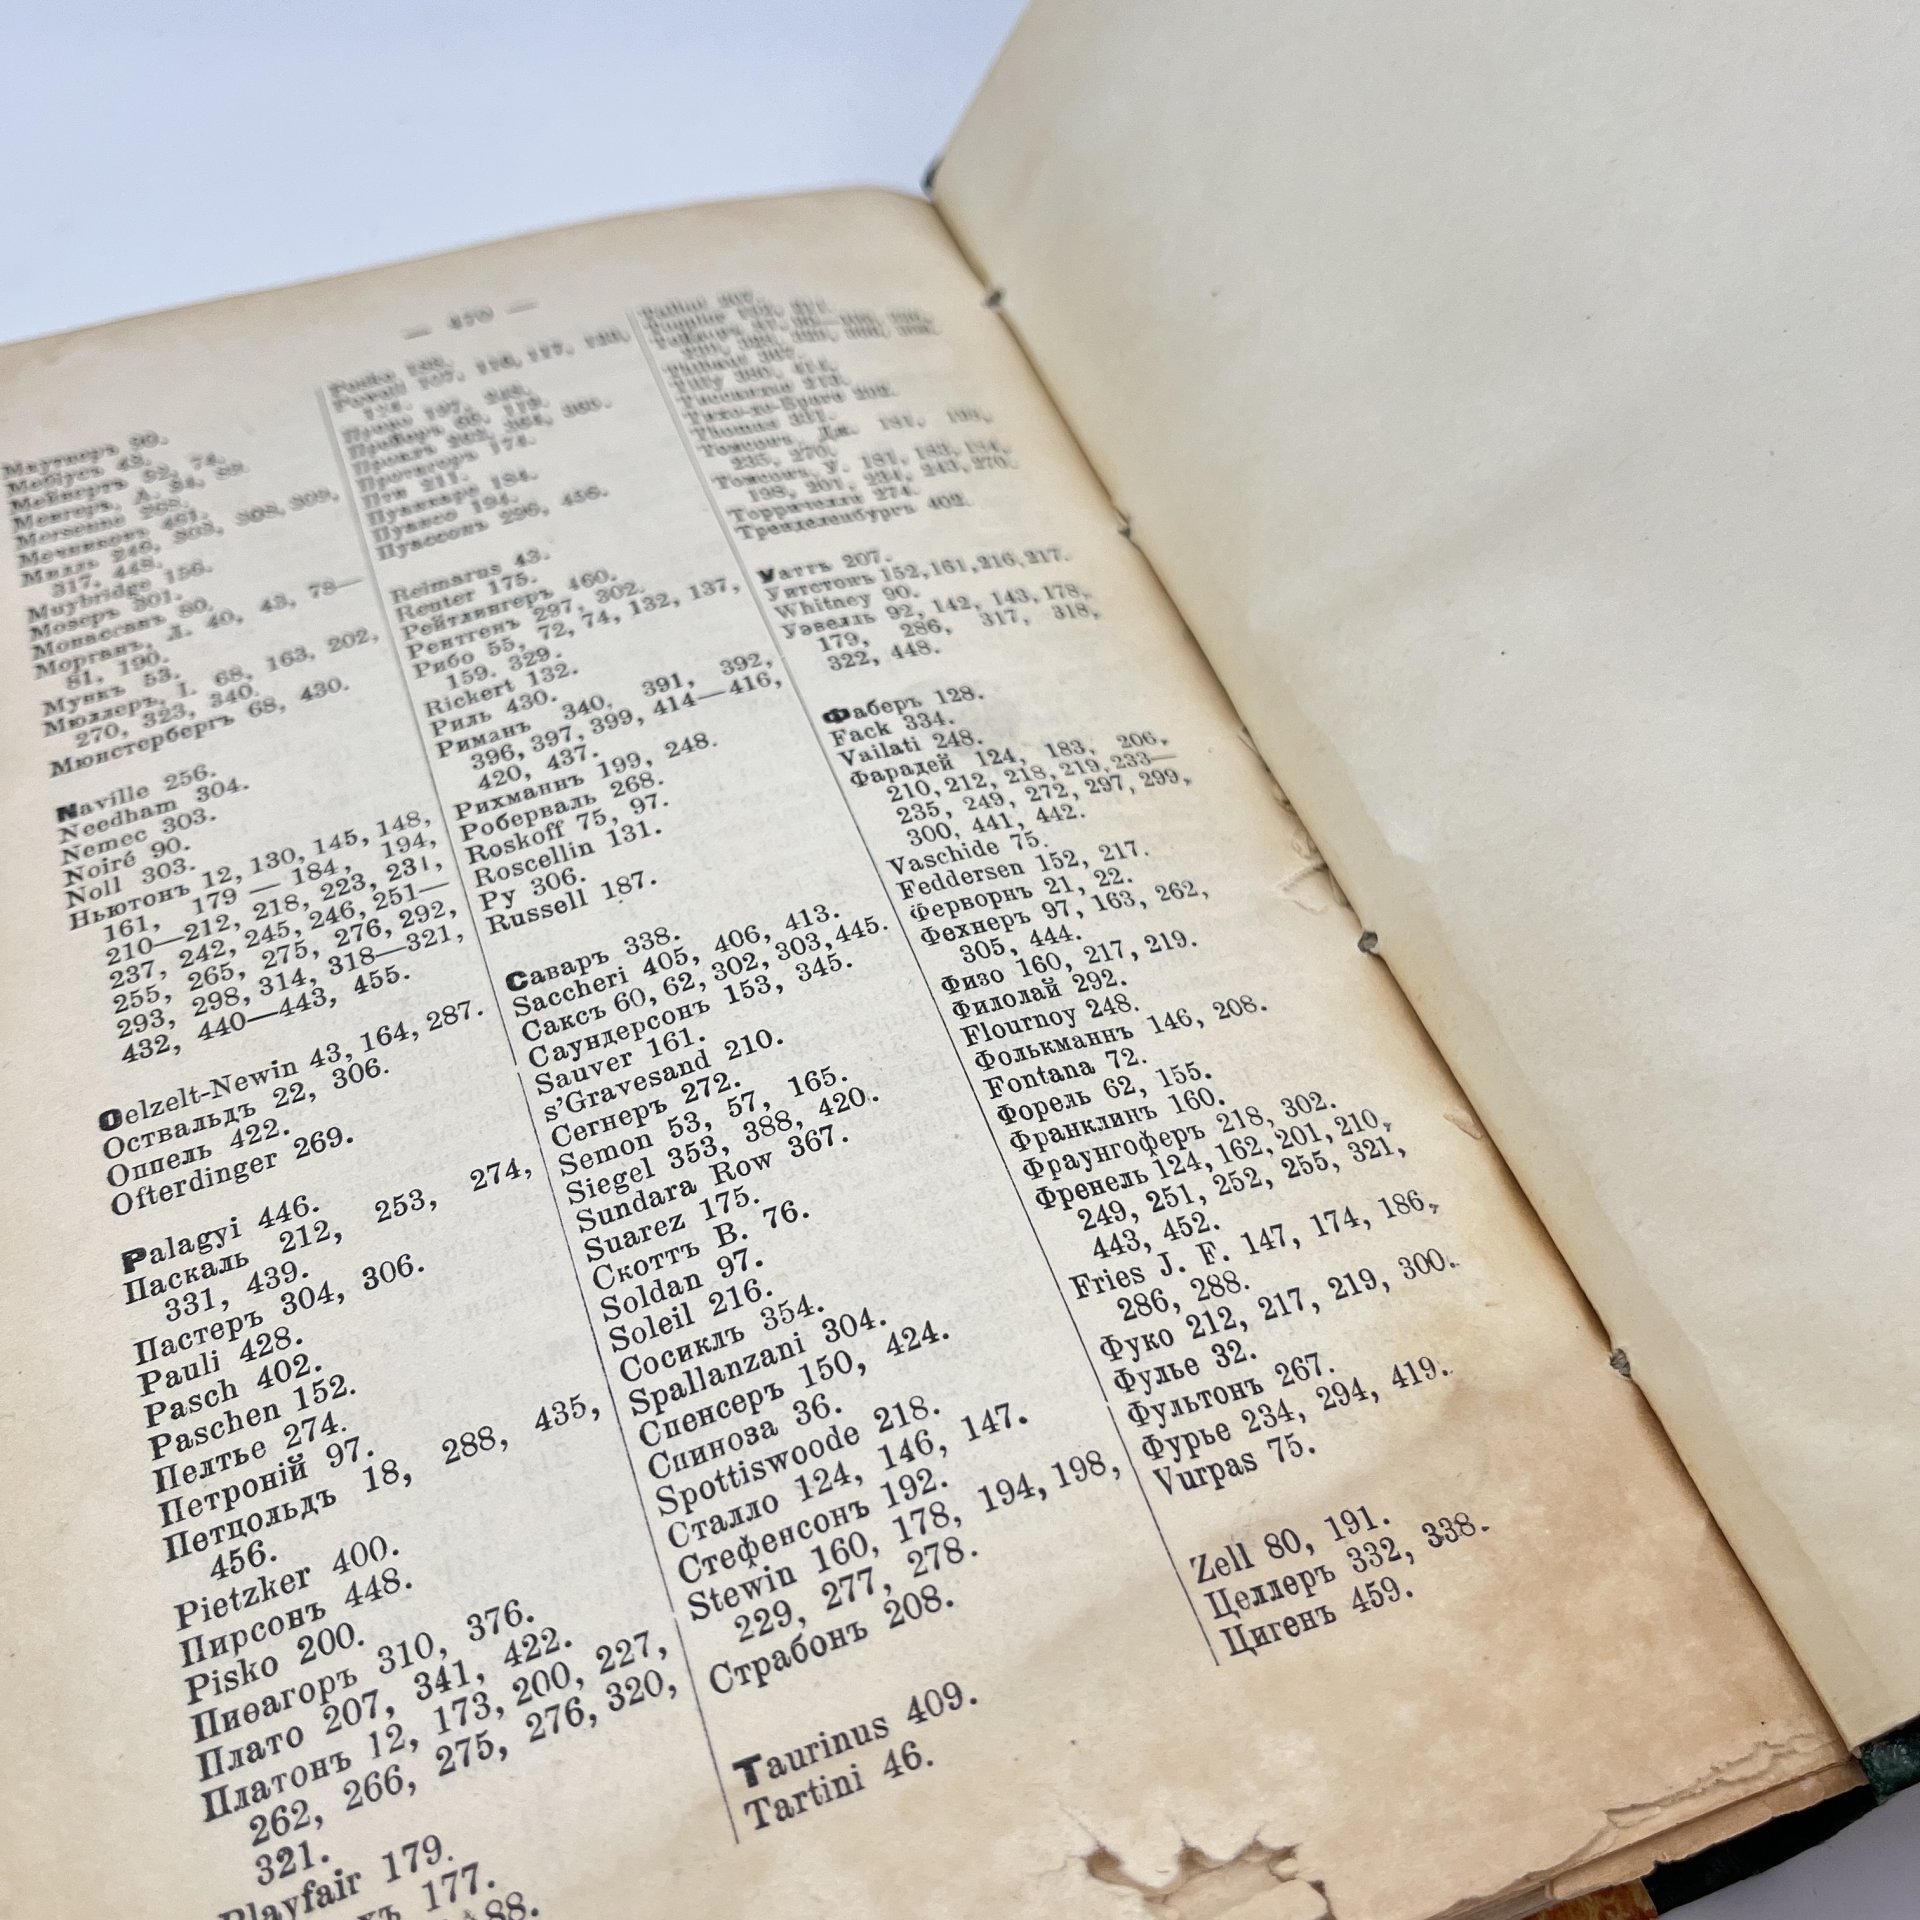 — 470 —
Маутнеръ 90.
Мебіусъ 43.
Мейнертъ 52, 74.
Менгеръ, А. 84, 89.
Mersenne 268.
Мечниковъ 461.
Милль 246, 303, 308, 309,
317, 448.
Muybridge 156.
Мозеръ 301.
Мопассанъ 80.
Морганъ, Л. 40, 43, 78—
81, 190.
Мункъ 53.
Мюллеръ, І. 68, 163, 202,
270, 323, 340.
Мюнстербергъ 68, 430.
Naville 256.
Needham 304.
Nemec 303.
Noiré 90.
Noll 303.
Ньютонъ 12, 130, 145, 148,
161, 179 — 184, 194,
210—212, 218, 223, 231,
237, 242, 245, 246, 251—
255, 265, 275, 276, 292,
293, 298, 314, 318—321,
432, 440—443, 455.
Oelzelt-Newin 43, 164, 287.
Оствальдъ 22, 306.
Оппель 422.
Ofterdinger 269.
Palagyi 446.
Паскаль 212, 253, 274,
331, 439.
Пастеръ 304, 306.
Pauli 428.
Pasch 402.
Paschen 152.
Пелтье 274.
Петроній 97.
Петцольдъ 18, 288, 435,
456.
Pietzker 400.
Пирсонъ 448.
Pisko 200.
Пиѳагоръ 310, 376.
Плато 207, 341, 422.
Платонъ 12, 173, 200, 227,
262, 266, 275, 276, 320,
321.
Playfair 179.
177.
88.
Powell 107, 116, 117, 123,
124.
Прейеръ 66, 119.
Проклъ
Протагоръ 174.
Пти 211.
Пуанкаре 184.
Пуансо 194.
Пуассонъ 296, 456.
Reimarus 43.
Reuter 175.
Рейтлингеръ 460.
Рентгенъ 297, 302.
Рибо 55, 72, 74, 132, 137,
159, 329.
Rickert 132.
Риль 430.
Риманъ 340, 391, 392,
396, 397, 399, 414—416,
420, 437.
Рихманнъ 199, 248.
Роберваль 268.
Roskoff 75, 97.
Roscellin 131.
Ру 306.
Russell 187.
Саваръ 338.
Saccheri 405, 406, 413.
Саксъ 60, 62, 302, 303, 445.
Саундерсонъ 153, 345.
Sauver 161.
s'Gravesand 210.
Сегнеръ 272.
Semon 53, 57, 165.
Siegel 353, 388, 420.
Sundara Row 367.
Suarez 175.
Скоттъ В. 76.
Soldan 97.
Soleil 216.
Сосиклъ 354.
Spallanzani 304.
Спенсеръ 150, 424.
Спиноза 36.
Spottiswoode 218.
Сталло 124, 146, 147.
Стефенсонъ 192.
Stewin 160, 178, 194, 198,
229, 277, 278.
Страбонъ 208.
Taurinus 409.
Tartini 46.
Thibaut 367.
Tilly 380, 414.
Тихо-де-Браге 202.
Thomas 331.
Томсонъ, Дж. 181, 198,
235, 270.
Томсонъ, У. 181, 183, 184,
198, 201, 234, 243, 270.
Торричелли 274.
Тренделенбургъ 402.
Уаттъ 207.
Уитстонъ 152, 161, 216, 217.
Whitney 90.
Уэвелль 92, 142, 143, 178,
179, 286, 317, 318,
322, 448.
Фаберъ 128.
Fack 334.
Vailati 248.
Фарадей 124, 183, 206,
210, 212, 218, 219, 233—
235, 249, 272, 297, 299,
300, 441, 442.
Vaschide 75.
Feddersen 152, 217.
Ферворнъ 21, 22.
Фехнеръ 97, 163, 262,
305, 444.
Физо 160, 217, 219.
Филолай 292.
Flournoy 248.
Фолькманнъ 146, 208.
Fontana 72.
Форель 62, 155.
Франклинъ 160.
Фраунгоферъ 218, 302.
Френель 124, 162, 201, 210,
249, 251, 252, 255, 321,
443, 452.
Fries J. F. 147, 174, 186,
286, 288.
Фуко 212, 217, 219, 300.
Фулье 32.
Фультонъ 267.
Фурье 234, 294, 419.
Vurpas 75.
Zell 80, 191.
Целлеръ 332, 338.
Цигенъ 459.